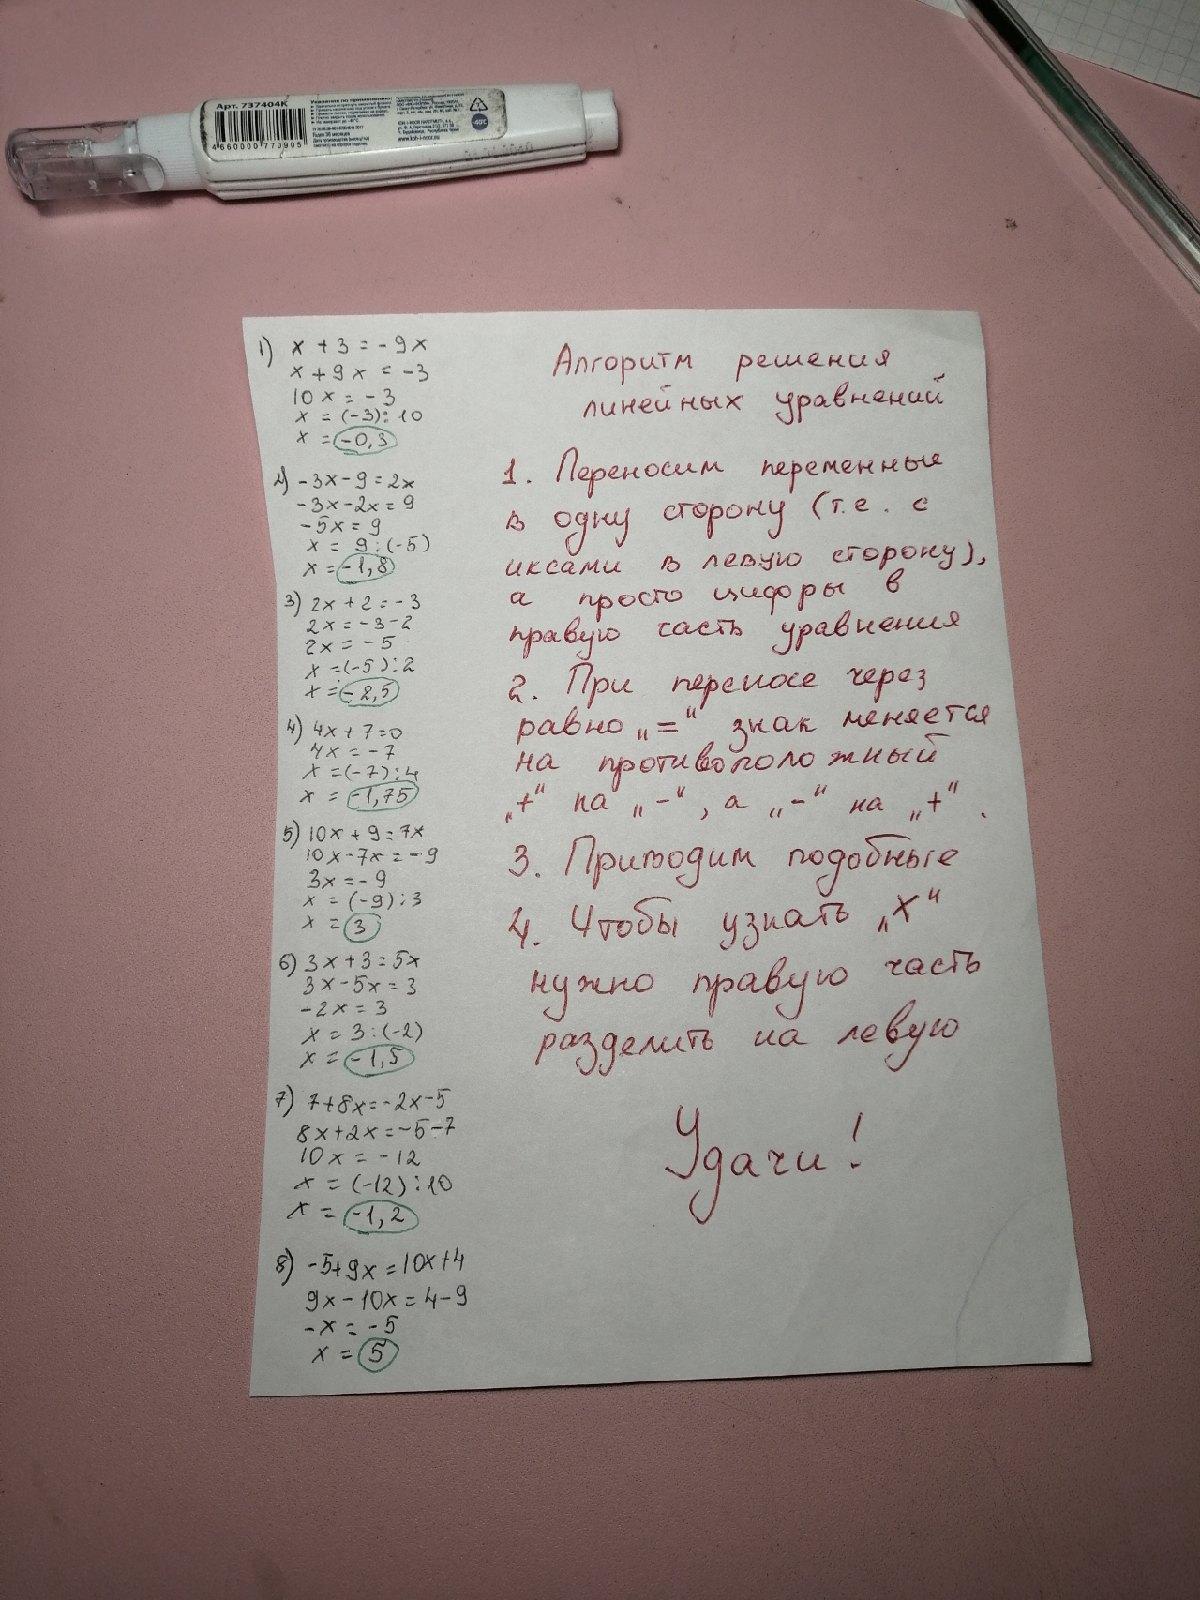 Арт. 737404К
Указания по применению:
4 660000 773905
www.koh-i-noor.ru
1) x + 3 = - 9x
x + 9x = -3
10x = -3
x = (-3):10
x = -0,3
2) -3x-9=2x
-3x-2x=9
-5x=9
x = 9:(-5)
x = -1,8
3) 2x+2=-3
2x=-3-2
2x=-5
x=(-5):2
x=-2,5
4) 4x+7=0
4x=-7
x=(-7):4
x = -1,75
5) 10x+9=7x
10x-7x=-9
3x=-9
x = (-9):3
x = 3
6) 3x+3=5x
3x-5x=3
-2x=3
x = 3:(-2)
x = -1,5
7) 7+8x=-2x-5
8x+2x=-5-7
10x = -12
x = (-12):10
x = -1,2
8) -5+9x=10x+4
9x-10x=4-9
-x = -5
x = 5
Алгоритм решения
линейных уравнений
1. Переносим переменные
в одну сторону (т.е. с
иксами в левую сторону),
а просто цифры в
правую часть уравнения
2. При переносе через
равно „=“ знак меняется
на противоположный
„+“ на „-“, а „-“ на „+“.
3. Приводим подобные
4. Чтобы узнать „х“
нужно правую часть
разделить на левую
Удачи!